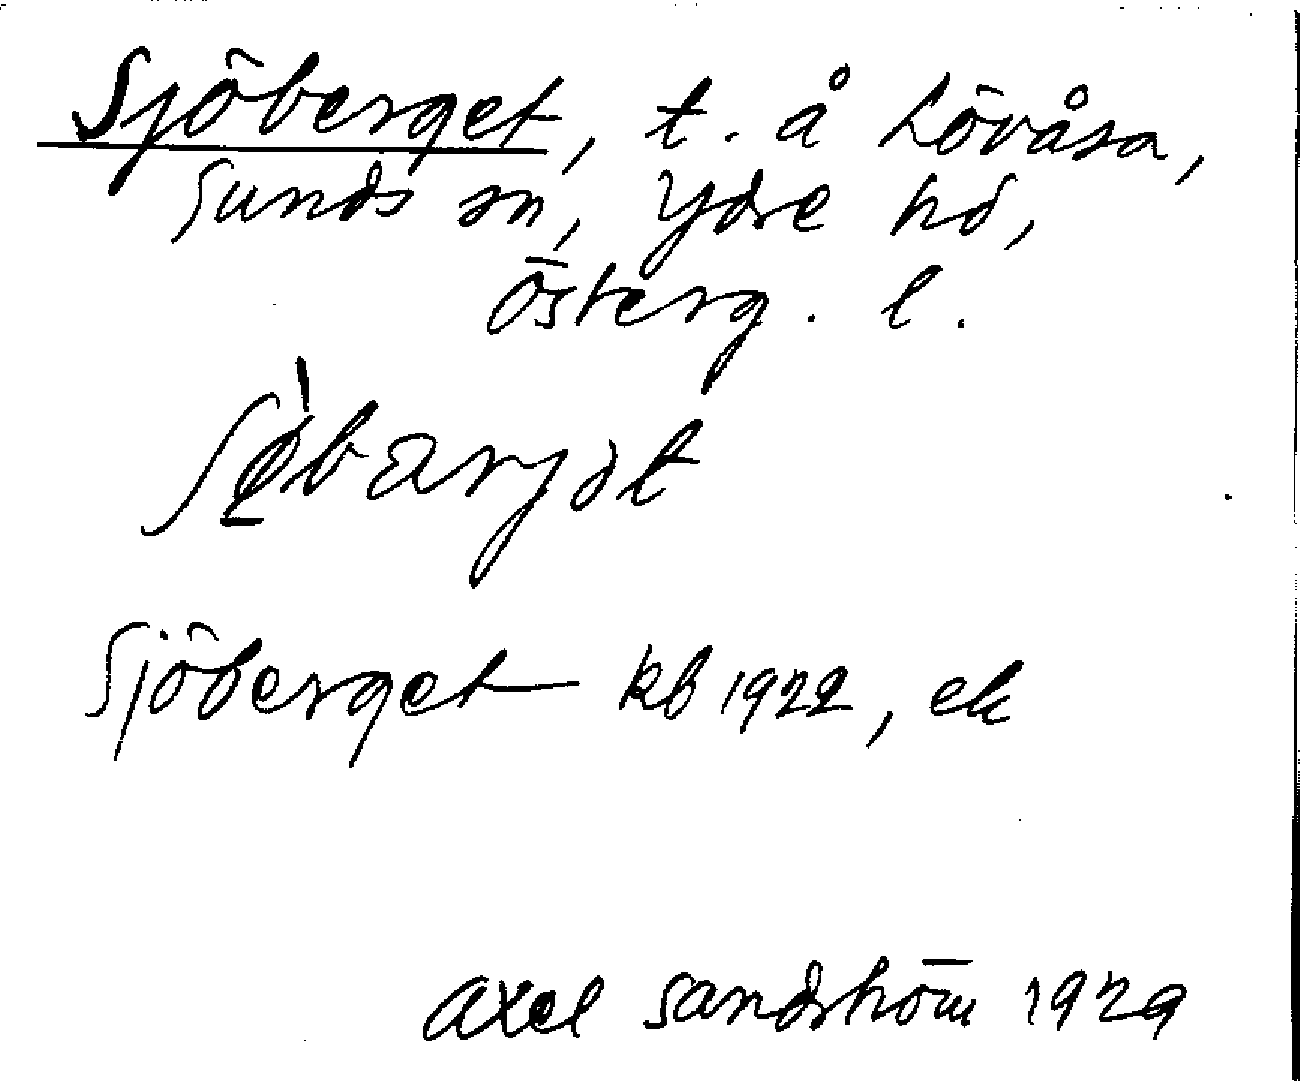 Sjöberget, t. å Lövåsa,
Sunds sn, Ydre hd,
Österg. l.
Sjöberget kb 1922, ek
Axel Sandström 1929